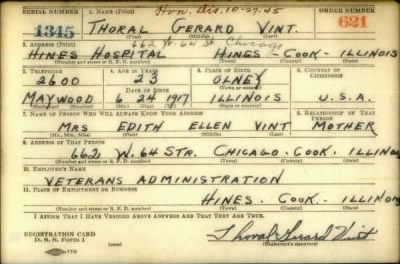 SERIAL NUMBER 1. NAME (Print) Hon. Dis. 10-27-45 ORDER NUMBER
1345 THORAL GERARD VINT. 621
(First) (Middle) (Last)
2. ADDRESS (Print) 662 W. 64 St Chicago
HINES HOSPITAL HINES - COOK - ILLINOIS
(Number and street or R. F. D. number) (Town) (County) (State)
3. TELEPHONE 4. AGE IN YEARS 5. PLACE OF BIRTH 6. COUNTRY OF CITIZENSHIP
2600 23 OLNEY
(Town or county)
DATE OF BIRTH
MAYWOOD 6 24 1917 ILLINOIS U.S.A.
(Exchange) (Mo.) (Day) (Yr.) (State or country)
7. NAME OF PERSON WHO WILL ALWAYS KNOW YOUR ADDRESS 8. RELATIONSHIP OF THAT PERSON
MRS EDITH ELLEN VINT MOTHER
(Mr., Mrs., Miss) (First) (Middle) (Last)
9. ADDRESS OF THAT PERSON
662 W. 64 STR. CHICAGO. COOK. ILLINOIS
(Number and street or R. F. D. number) (Town) (County) (State)
10. EMPLOYER'S NAME
VETERANS ADMINISTRATION
11. PLACE OF EMPLOYMENT OR BUSINESS
HINES. COOK. ILLINOIS
(Number and street or R. F. D. number) (Town) (County) (State)
I AFFIRM THAT I HAVE VERIFIED ABOVE ANSWERS AND THAT THEY ARE TRUE.
REGISTRATION CARD
D. S. S. Form 1 Thoral Gerard Vint
(Registrant's signature)